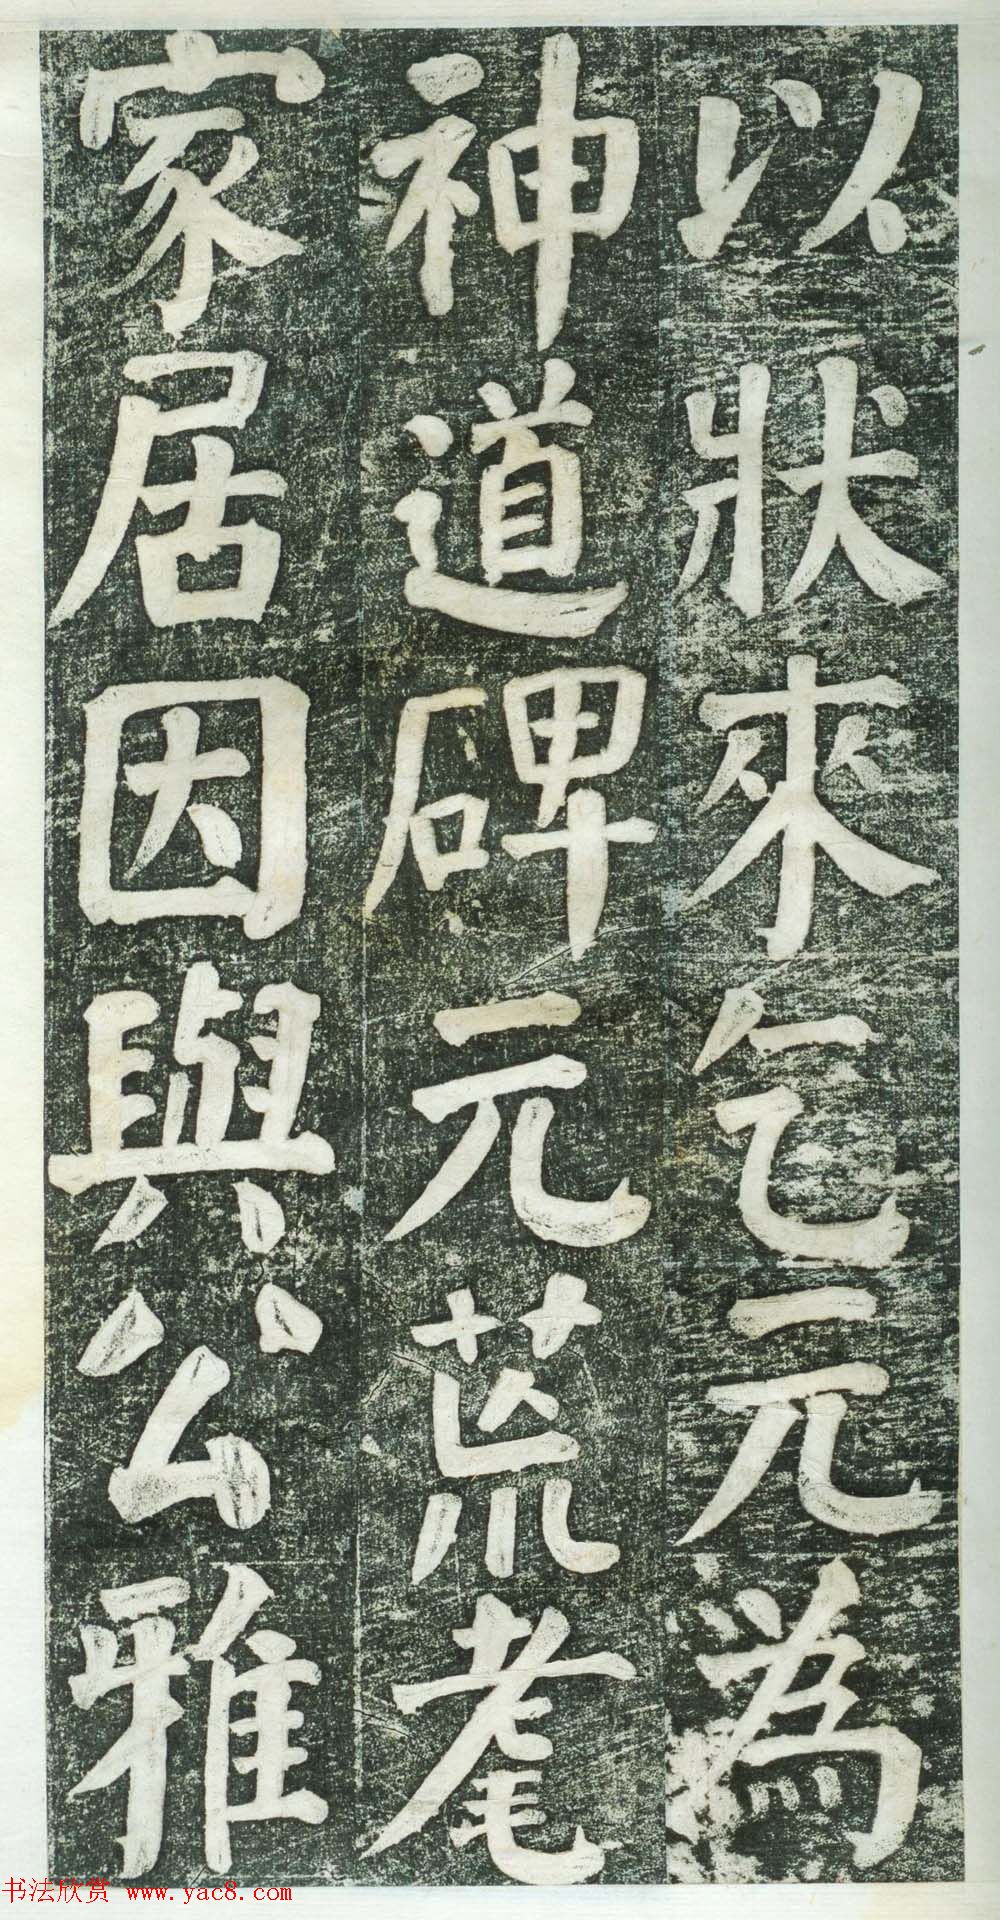 以狀來乞元為
神道碑元荒耄
家居因與公雅
书法欣赏 www.yac8.com